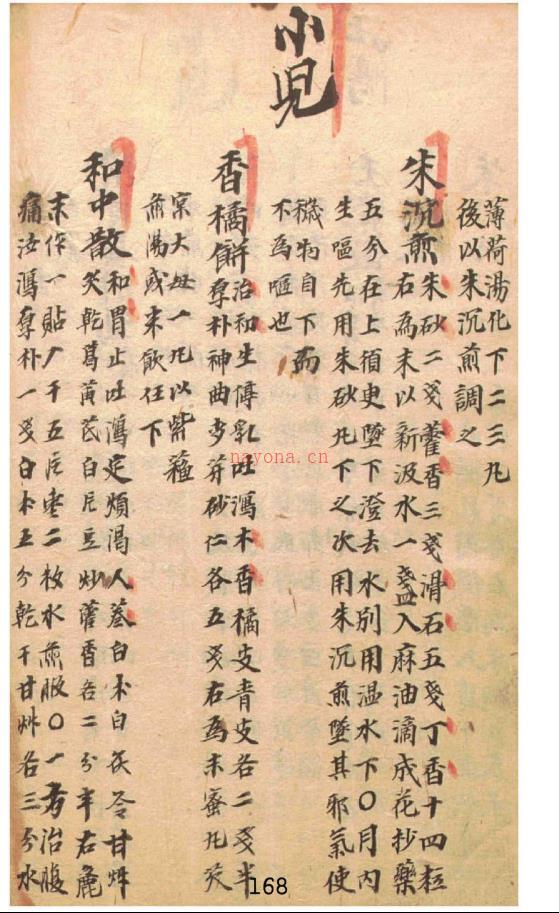 小児
薄荷湯化下二三凡
後以朱沉煎調之
朱沉煎 朱砂二戔藿香三戔滑石五戔丁香十四粒
右為末以新汲水一盞入麻油滴成花抄藥
五分在上須臾墜下澄去水別用温水下〇月内
生嘔先用朱砂凡下之次用朱沉煎墜其邪氣使
穢物自下而
不為嘔也
香橘餠 治初生傳乳吐瀉木香橘皮青皮各二戔半
厚朴神曲麥芽砂仁各五戔右為末蜜凡芡
宲大每一凡以紫蘓
煎湯或米飮任下
和中散 和胃止吐瀉定煩渴人參白朮白茯苓甘艸
炙乾葛黃芪白扁豆炒藿香各二分半右麁
末作一貼干五片枣二枚水煎服〇一方治腹
痛瀉厚朴一戔白朮五分乾干甘艸各三分水
nayona.cn
168